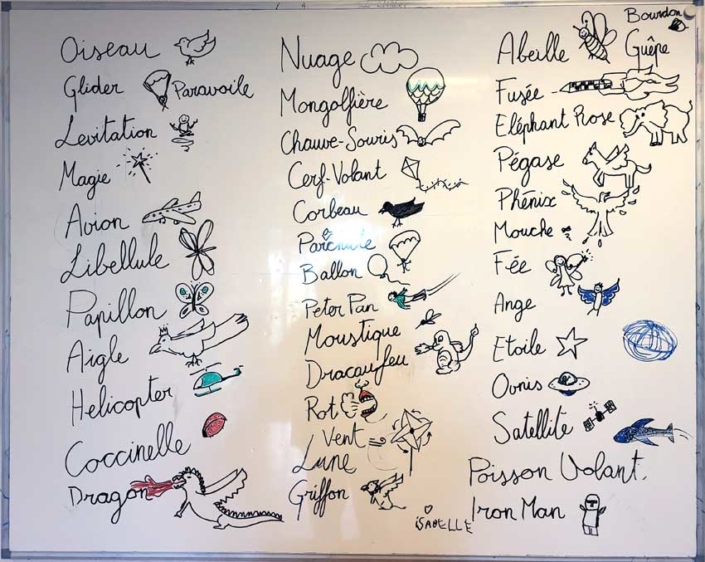 Oiseau
Glider Paravoile
Levitation
Magie
Avion
Libellule
Papillon
Aigle
Helicopter
Coccinelle
Dragon
Nuage
Mongolfière
Chauve-Souris
Cerf-Volant
Corbeau
Parachute
Ballon
Peter Pan
Moustique
Dracaufeu
Rot
Vent
Lune
Griffon
ISABELLE
Bourdon
Abeille Guêpe
Fusée
Eléphant Rose
Pégase
Phénix
Mouche
Fée
Ange
Etoile
Ovnis
Satellite
Poisson Volant.
Iron Man